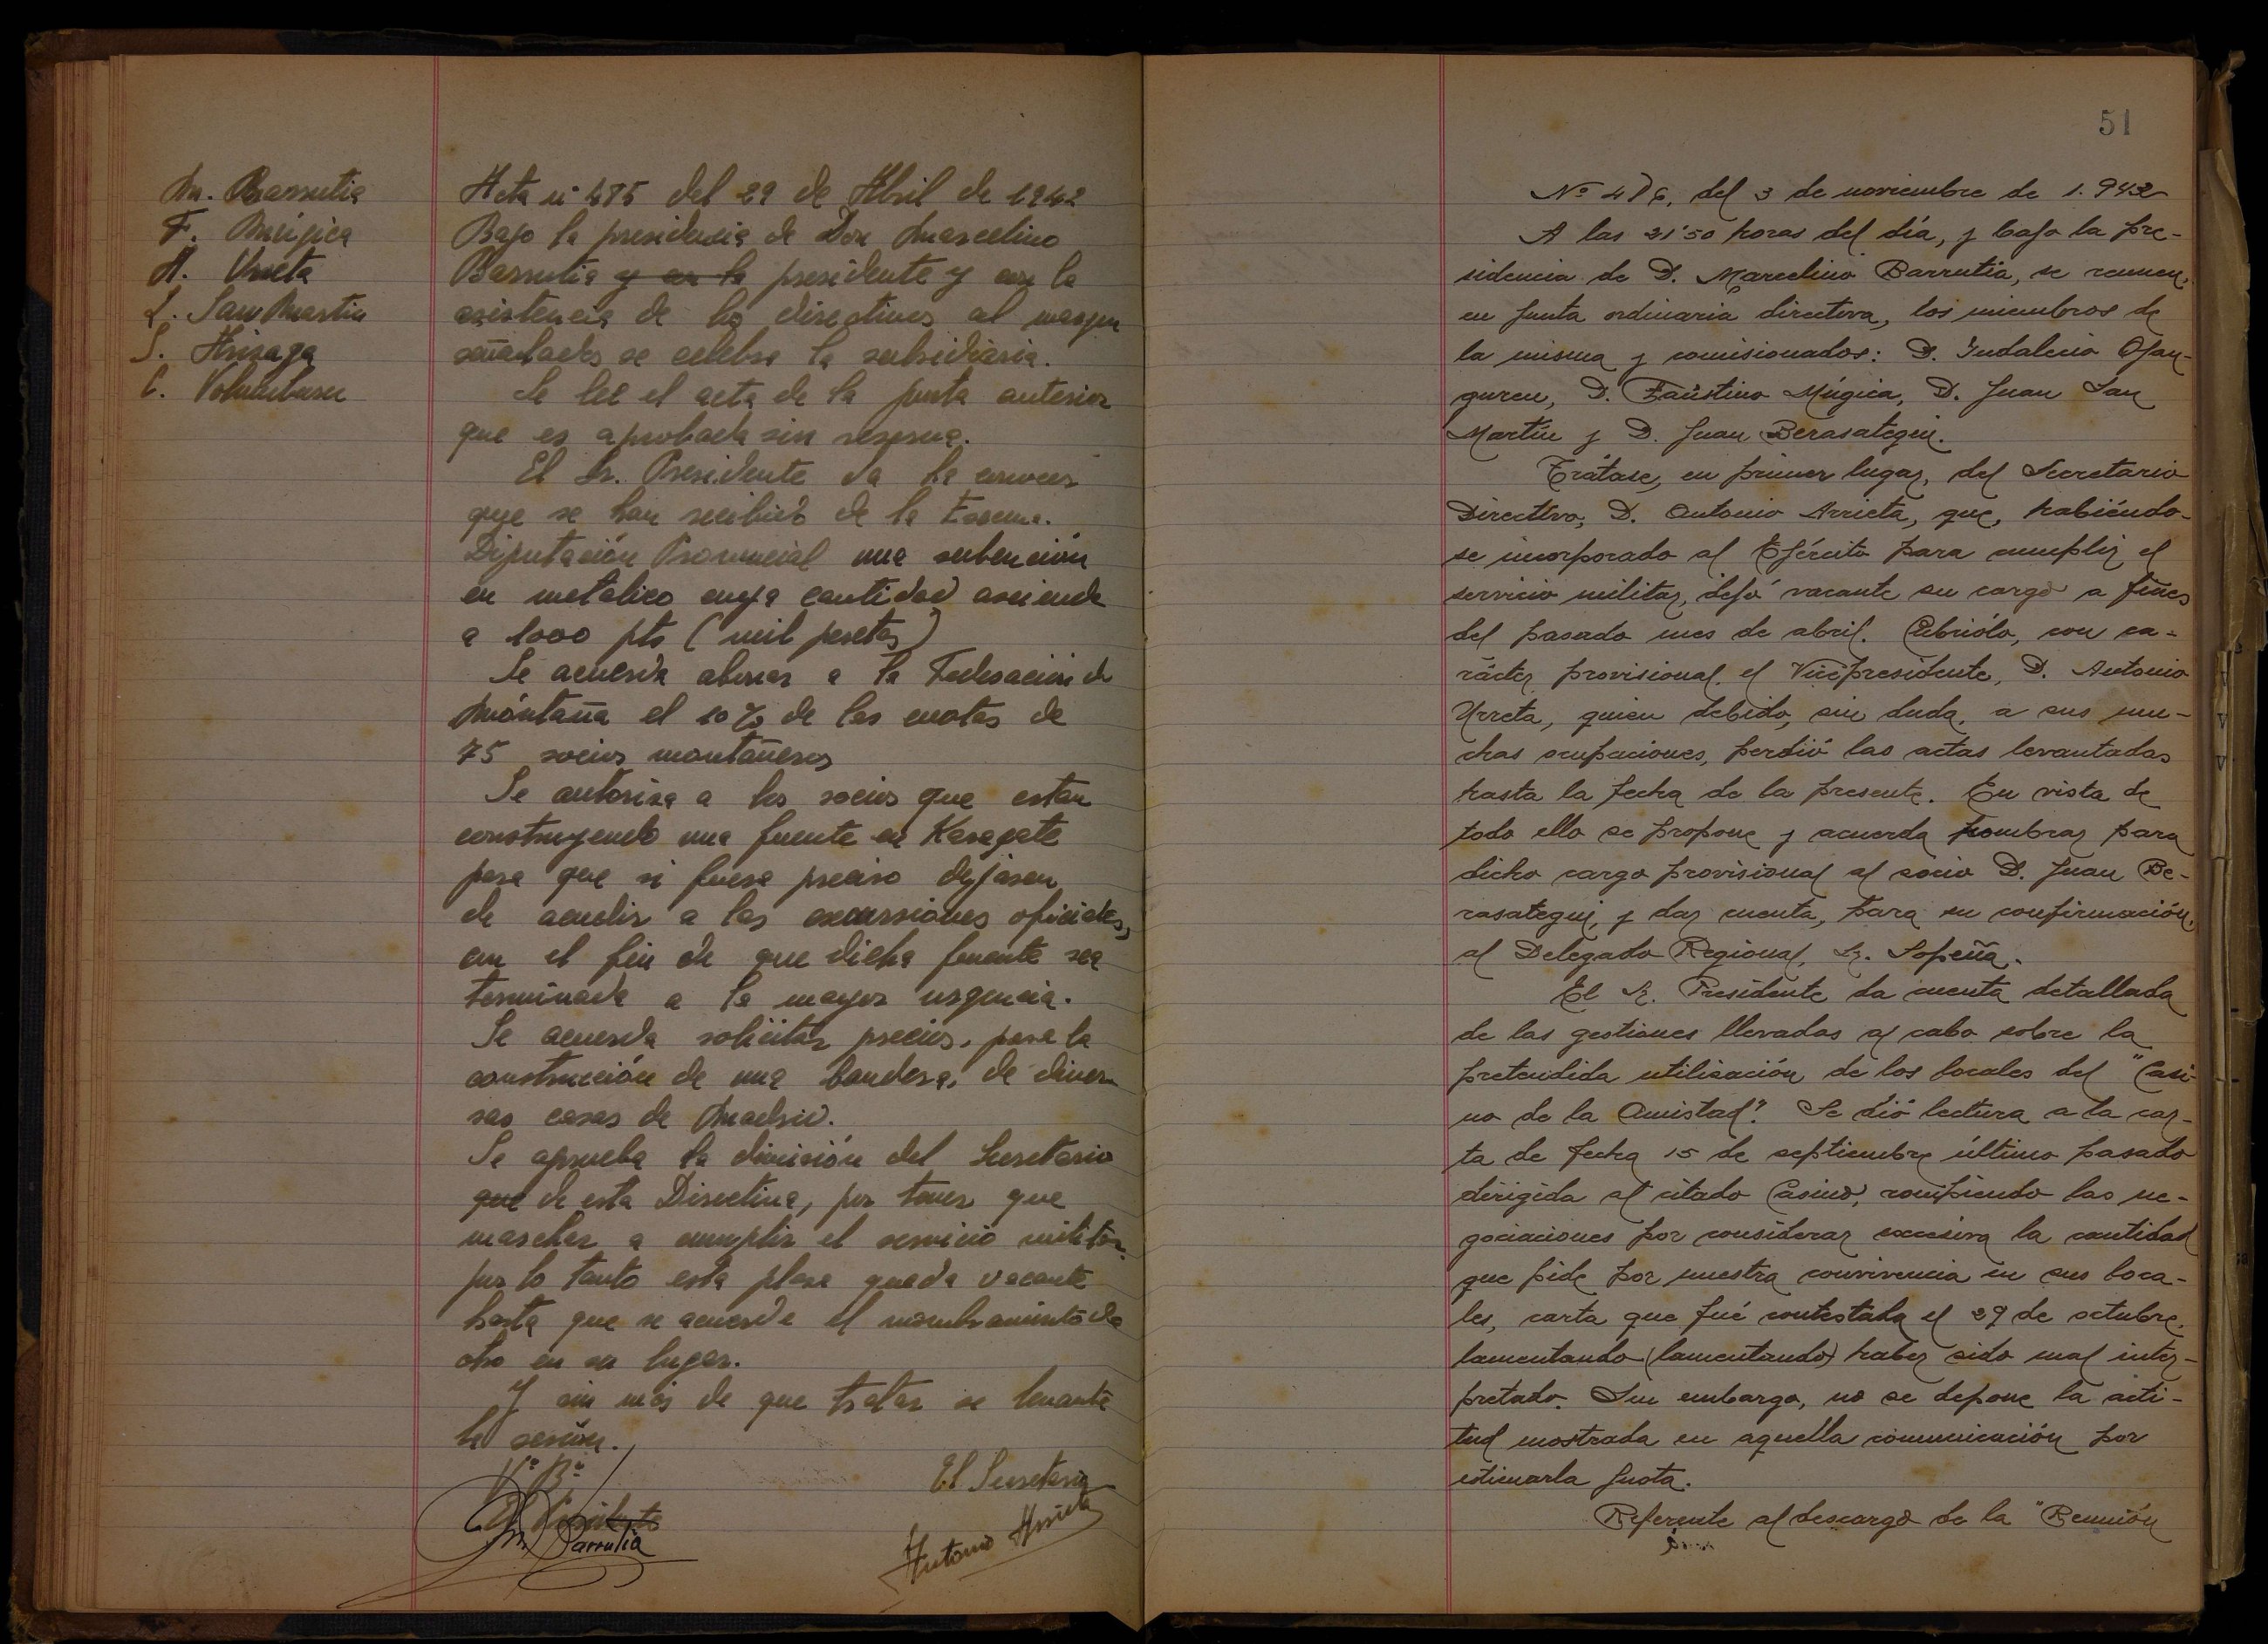 M. Barrutia
F. Múgica
A. Urreta
J. San Martin
S. Arizaga
C.
Acta nº 475 del 29 de Abril de 1942
Bajo la presidencia de Don Marcelino
Barrutia y en la presidente y con la
asistencia de los directivos al margen
señalados se celebra la subsidiaria.
Se lee el acta de la junta anterior
que es aprobada sin reserva.
El Sr. Presidente da ha conocer
que se han recibido de la Excma.
Diputación Provincial una subención
en metalico cuya cantidad asciende
a 1000 pts (mil pesetas)
Se acuerda abonar a la Federación de
Montaña el 10% de las cuotas de
75 socios montañeros
Se autoriza a los socios que estan
construyendo una fuente en Kasagate
para que si fuese preciso dejasen
de acudir a las excursiones oficiales,
con el fin de que dicha fuente sea
terminada a la mayor urgencia.
Se acuerda solicitar precios, para la
construcción de una bandera, de diver
sas casas de Madrid.
Se aprueba la dimisión del Secretario
que de esta Directiva, por tener que
marchar a cumplir el servicio militar
por lo tanto esta plaza queda vacante
hasta que se acuerde el nombramiento de
otro en su lugar.
Y sin más de que tratar se levanta
la sesión.
Vº Bº
El Presidente
M. Barrutia
El Secretario
Antonio Arrieta
51
Nº 476, del 3 de noviembre de 1.942
A las 21'50 horas del día, y bajo la pre-
sidencia de D. Marcelino Barrutia, se reunen,
en junta ordinaria directiva, los miembros de
la misma y comisionados: D. Indalecio Ojan-
guren, D. Faustino Múgica, D. Juan San
Martín y D. Juan Berasategui.
Trátase, en primer lugar, del Secretario
Directivo, D. Antonio Arrieta, que, habiéndo-
se incorporado al Ejército para cumplir el
servicio militar, dejó vacante su cargo a fines
del pasado mes de abril. Cubriólo, con ca-
rácter provisional, el Vicepresidente, D. Antonio
Urreta, quien debido, sin duda, a sus mu-
chas ocupaciones, perdió las actas levantadas
hasta la fecha de la presente. En vista de
todo ello se propone y acuerda nombrar para
dicho cargo provisional al socio D. Juan Be-
rasategui, y dar cuenta, para su confirmación,
al Delegado Regional, Sr. Sopeña.
El Sr. Presidente da cuenta detallada
de las gestiones llevadas al cabo sobre la
pretendida utilización de los locales del "Casi-
no de la Amistad". Se dió lectura a la car-
ta de fecha 15 de septiembre último pasado
dirigida al citado Casino, rompiendo las ne-
gociaciones por considerar excesiva la cantidad
que pide por nuestra convivencia en sus loca-
les, carta que fué contestada el 29 de octubre,
lamentando (lamentando) haber sido mal inter-
pretado. Sin embargo, no se depone la acti-
tud mostrada en aquella comunicación por
estimarla justa.
Referente al descargo de la "Reunión